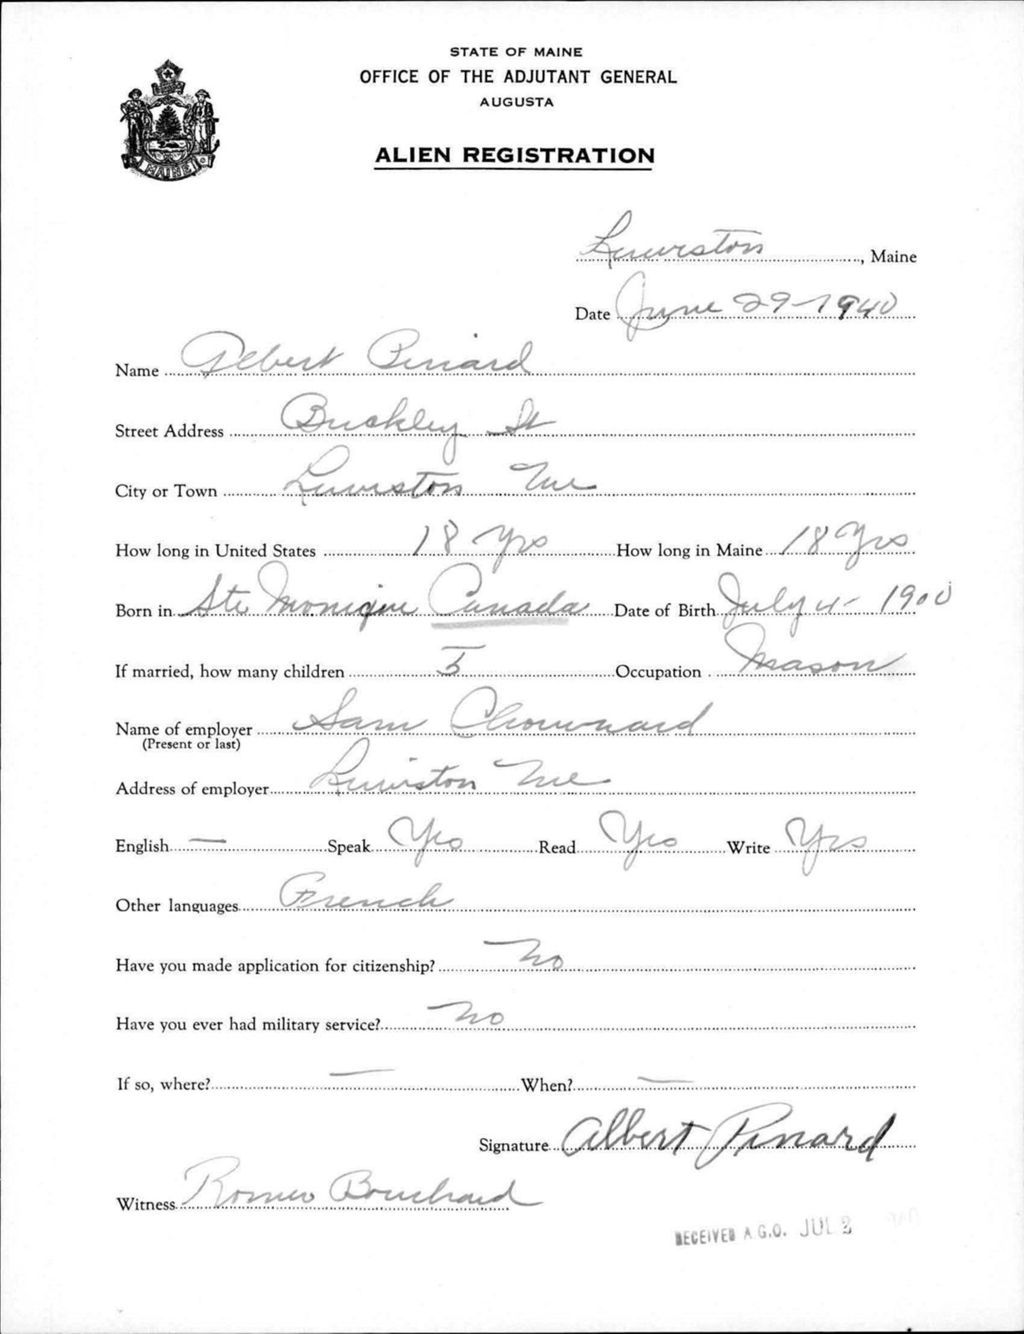 STATE OF MAINE
OFFICE OF THE ADJUTANT GENERAL
AUGUSTA
ALIEN REGISTRATION
MAINE
Lewiston, Maine
Date June 29-1940
Name Albert Pinard
Street Address Buckley St
City or Town Lewiston Me
How long in United States 18 Yrs How long in Maine 18 Yrs
Born in Ste Monique Canada Date of Birth July 4- 1900
If married, how many children 5 Occupation Mason
Name of employer Sam Chouinard
(Present or last)
Address of employer Lewiston Me
English — Speak Yes Read Yes Write Yes
Other languages French
Have you made application for citizenship? No
Have you ever had military service? No
If so, where? — When? —
Signature Albert Pinard
Witness Romeo Bouchard
RECEIVED A.G.O. JUL 2 1940